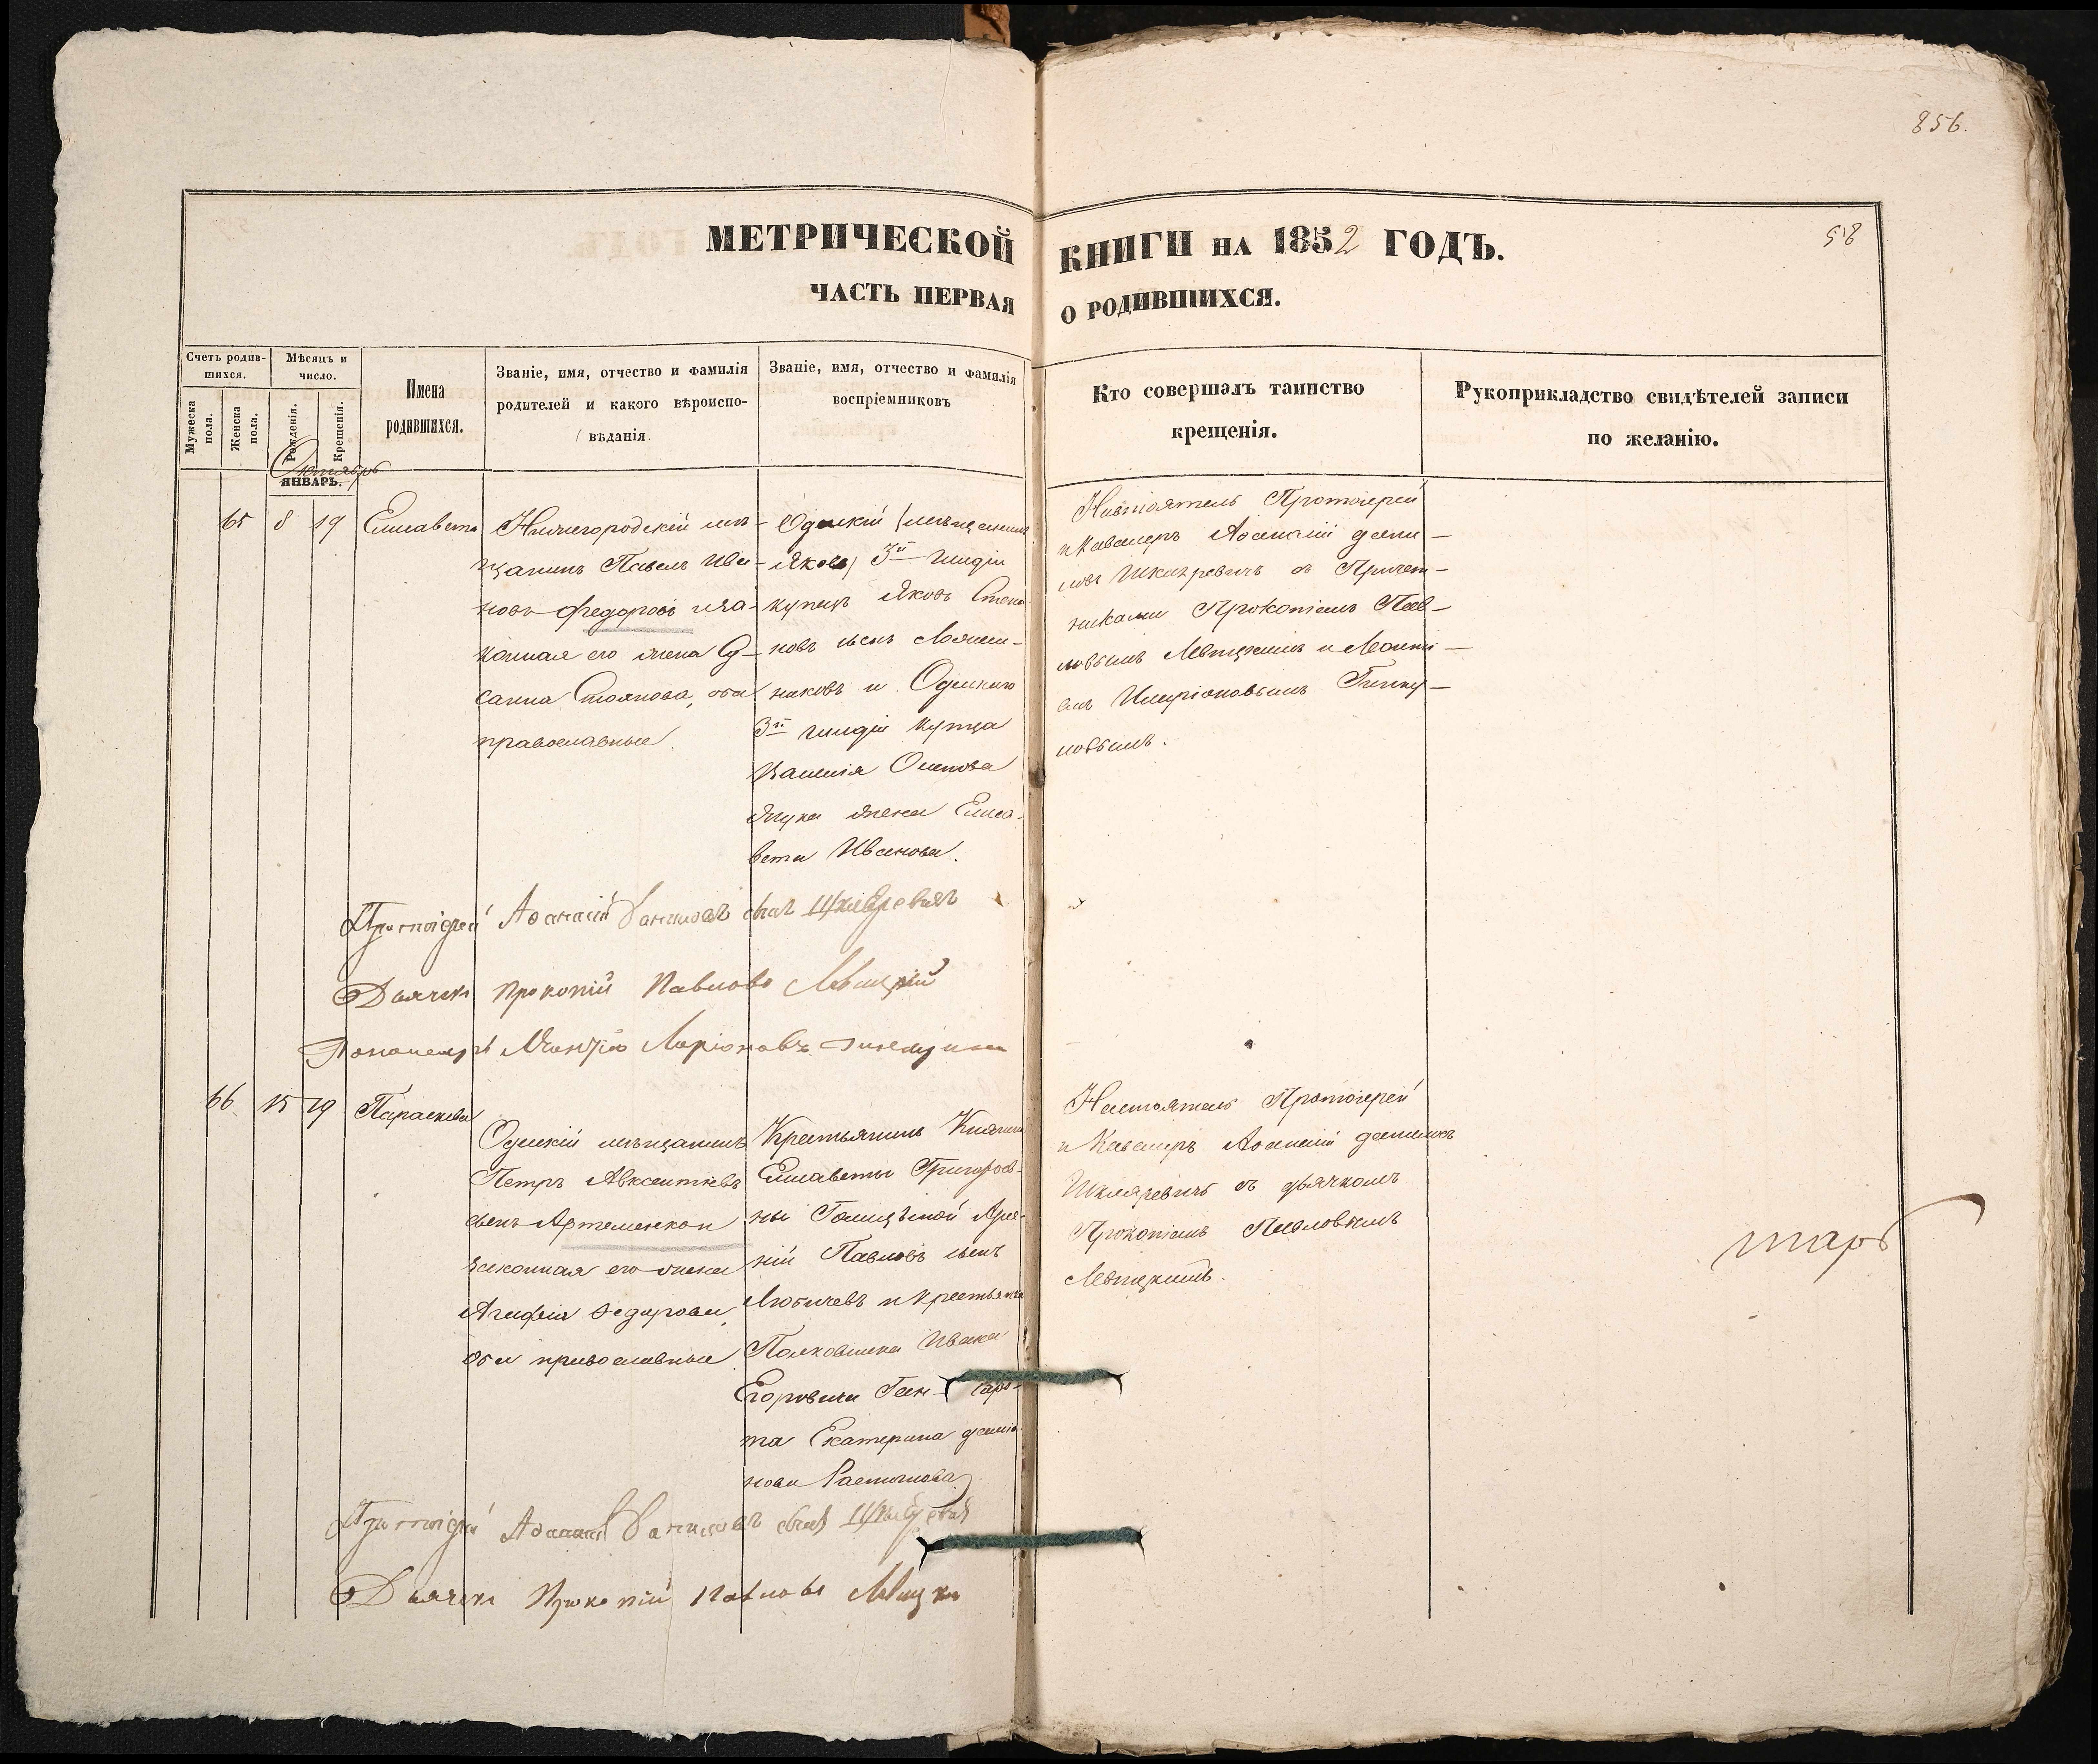 856.
МЕТРИЧЕСКОЙ КНИГИ НА 1852 ГОДЪ.
58
ЧАСТЬ ПЕРВАЯ О РОДИВШИХСЯ.
Счетъ родив-
шихся.
Мѣсяцъ и
число.
Мужеска
пола.
Женска
пола.
Рожденія.
Крещенія.
Имена
родившихся.
Званіе, имя, отчество и фамилія
родителей и какого вѣроиспо-
вѣданія.
Званіе, имя, отчество и фамилія
воспріемниковъ
Кто совершалъ таинство
крещенія.
Рукоприкладство свидѣтелей записи
по желанію.
Октябрь
ЯНВАРЬ.
65
8
19
Елисавета
Нижегородскій мѣ-
щанинъ Павелъ Ива-
новъ Федоровъ и за-
конная его жена
Стоянова, оба
православные.
Одескій
3й гильдіи
купецъ Яковъ
новъ сынъ
никовъ и Одескаго
3й гильдіи купца
Василія Осипова
жена Елиса-
вета Иванова.
Настоятель Протоіерей
и Кавалеръ Аѳанасій Дани-
ловъ Шкляревичъ съ Причет-
никами Прокопіемъ Пав-
ловымъ Левицкимъ и Леонті-
емъ
новымъ.
Протоіерей Аѳанасій Даниловъ сынъ Шкляревичъ
Дьячекъ Прокопій Павловъ Левицкій
Пономарь Леонтій Ларіоновъ
66
15
19
Параскева
Одескій мѣщанинъ
Петръ Авксентіевъ
сынъ Артеменко и
законная его жена
Агафія Федорова,
оба православные.
Крестьянинъ Княгини
Елисаветы Григорьев-
ны Голицыной
ній Павловъ сынъ
и крестьянка
Полковника Ивана
Егоровича Ган-
та Екатерина
нова
Настоятель Протоіерей
и Кавалеръ Аѳанасій Даниловъ
Шкляревичъ съ дьячкомъ
Прокопіемъ Павловымъ
Левицкимъ.
Протоіерей Аѳанасій Даниловъ сынъ Шкляревичъ
Дьячекъ Прокопій Павловъ
тарь